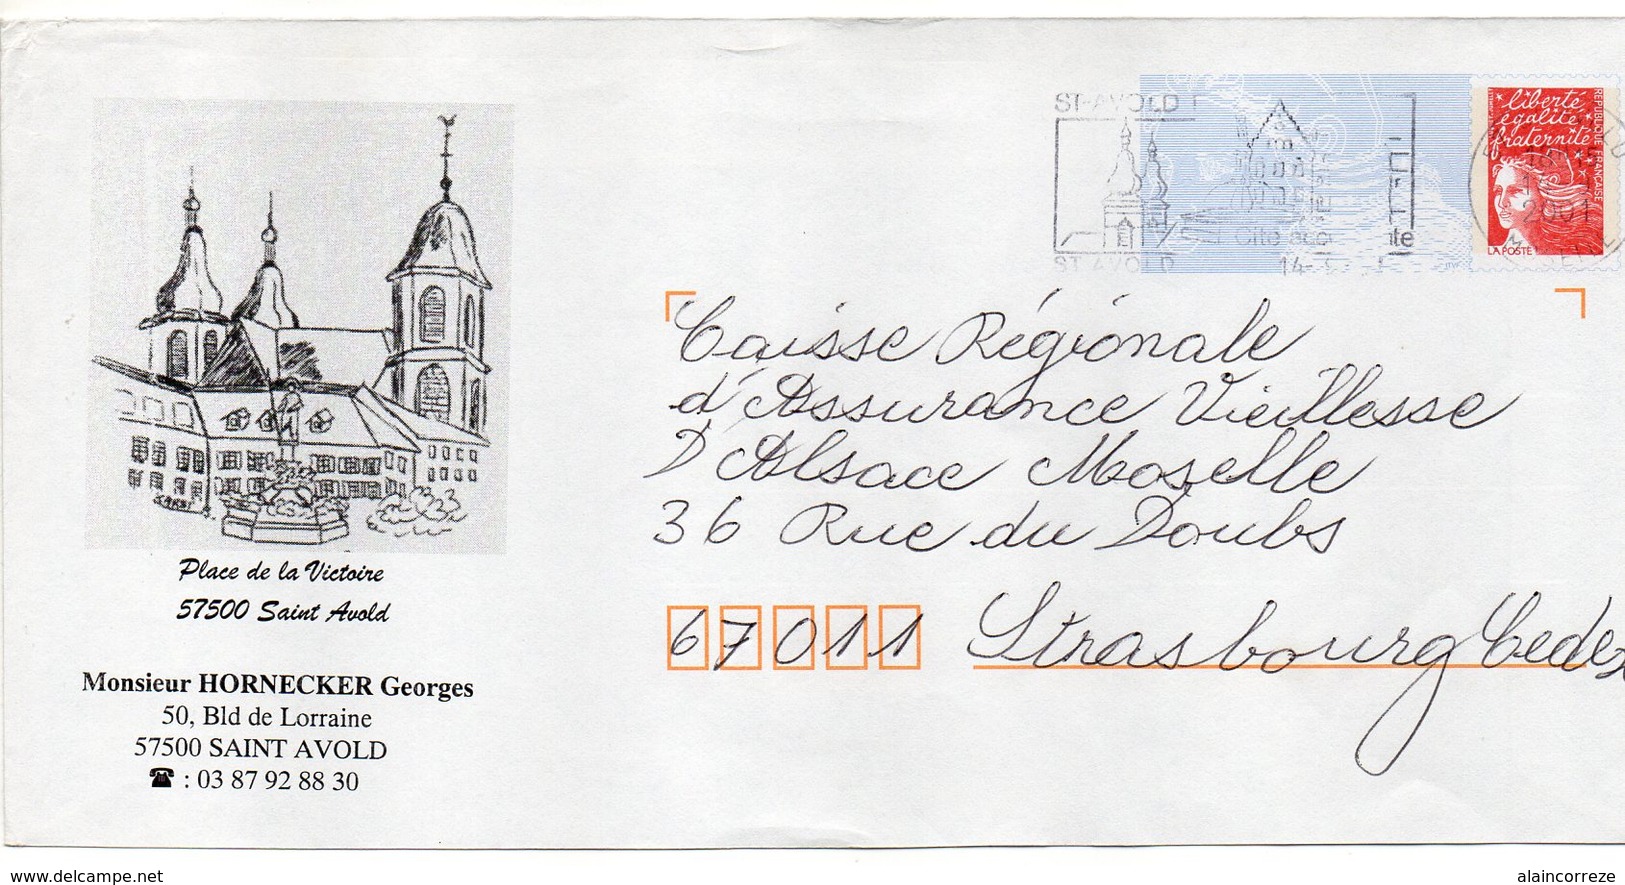 ST-AVOLD
ST AVOLD
14-
2001
liberté
égalité
fraternité
REPUBLIQUE FRANÇAISE
LA POSTE
Caisse Régionale
d'Assurance Vieillesse
D'Alsace Moselle
36 Rue du Doubs
67011 Strasbourg Cedex
Place de la Victoire
57500 Saint Avold
Monsieur HORNECKER Georges
50, Bld de Lorraine
57500 SAINT AVOLD
☎ : 03 87 92 88 30
www.delcampe.net
alaincorreze